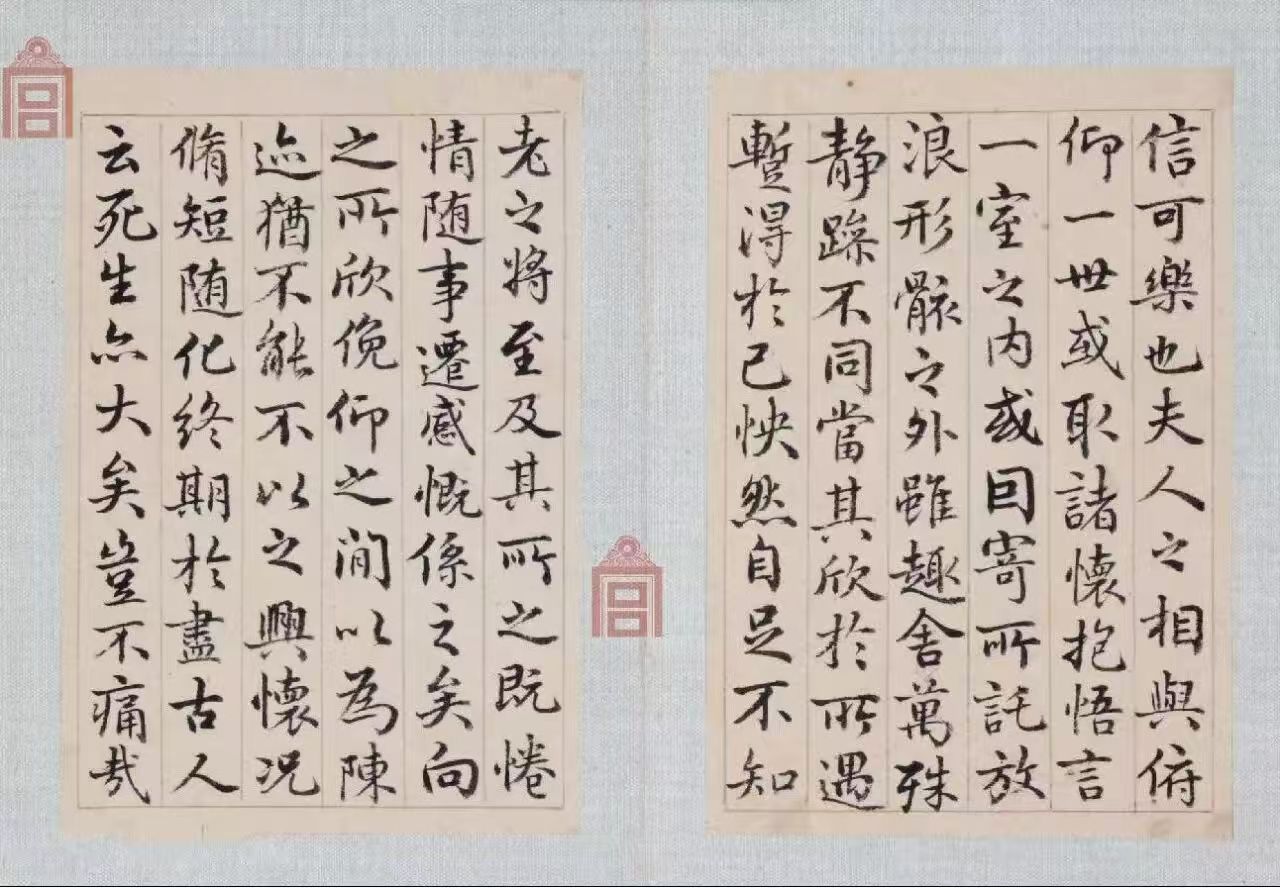 信可樂也夫人之相與俯
仰一世或取諸懷抱悟言
一室之内或因寄所託放
浪形骸之外雖趣舍萬殊
静躁不同當其欣於所遇
蹔得於己怏然自足不知
老之將至及其所之既惓
情随事遷感慨係之矣向
之所欣俛仰之間以為陳
迹猶不能不以之興懷况
脩短随化終期於盡古人
云死生亦大矣豈不痛哉